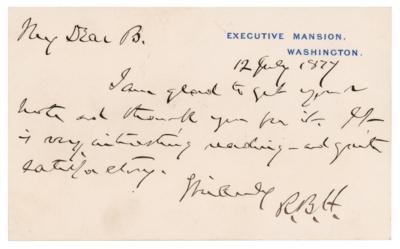 My Dear B.
EXECUTIVE MANSION.
WASHINGTON.
12 July 1877
I am glad to get your
note and thank you for it. It
is very interesting reading - and quite
satisfactory.
Sincerely
R.B.H.